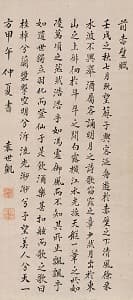 前赤壁賦
壬戌之秋七月既望蘇子與客泛舟遊於赤壁之下清風徐來
水波不興舉酒屬客誦明月之詩歌窈窕之章少焉月出於東
山之上徘徊於斗牛之間白露橫江水光接天縱一葦之所如
凌萬頃之茫然浩浩乎如馮虛御風而不知其所止飄飄乎
如遺世獨立羽化而登仙於是飲酒樂甚扣舷而歌之歌曰
桂棹兮蘭槳擊空明兮泝流光渺渺兮予望美人兮天一
方甲午仲夏書 袁世凱